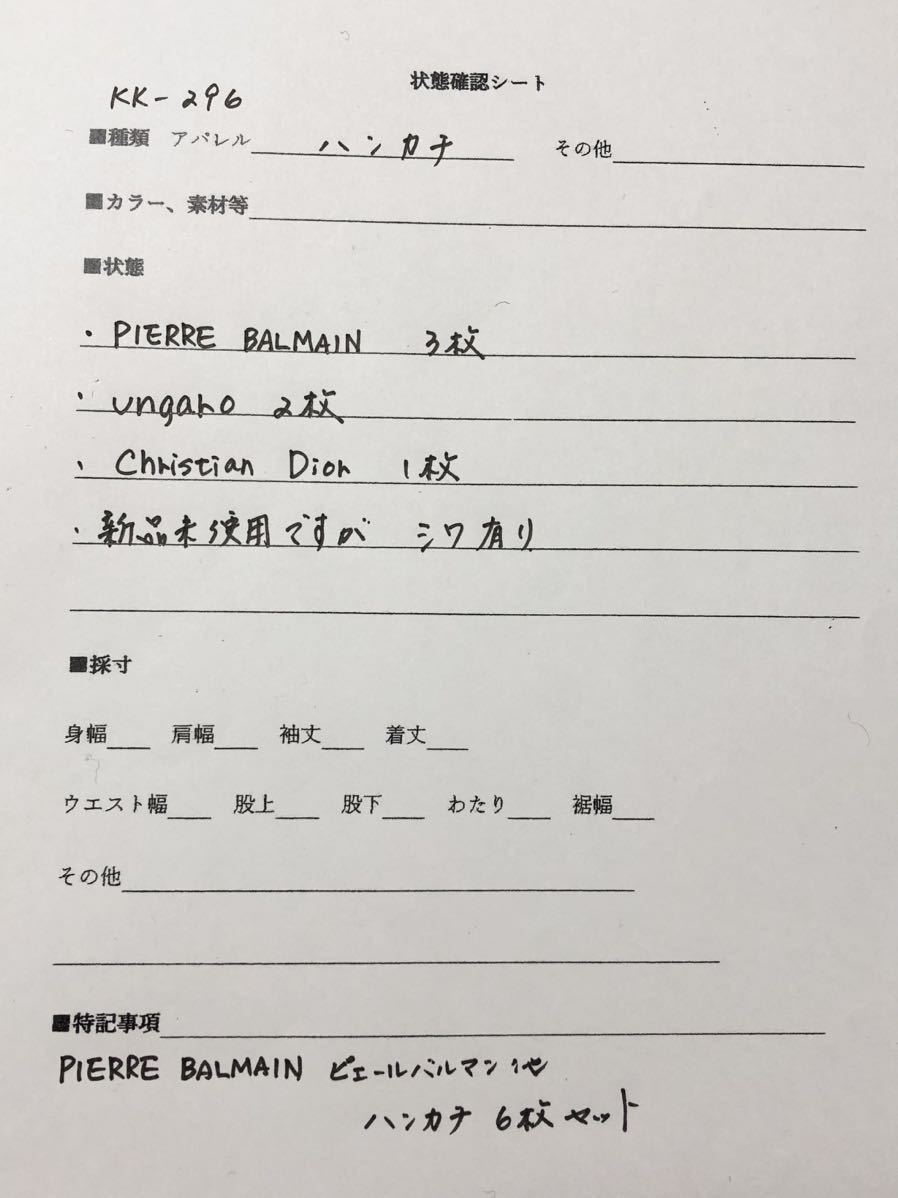 状態確認シート
KK-296
■種類 アパレル ハンカチ その他
■カラー、素材等
■状態
・PIERRE BALMAIN 3枚
・ungaro 2枚
・Christian Dior 1枚
・新品未使用ですが シワ有り
■採寸
身幅 肩幅 袖丈 着丈
ウエスト幅 股上 股下 わたり 裾幅
その他
■特記事項
PIERRE BALMAIN ピエールバルマン他
ハンカチ 6枚セット